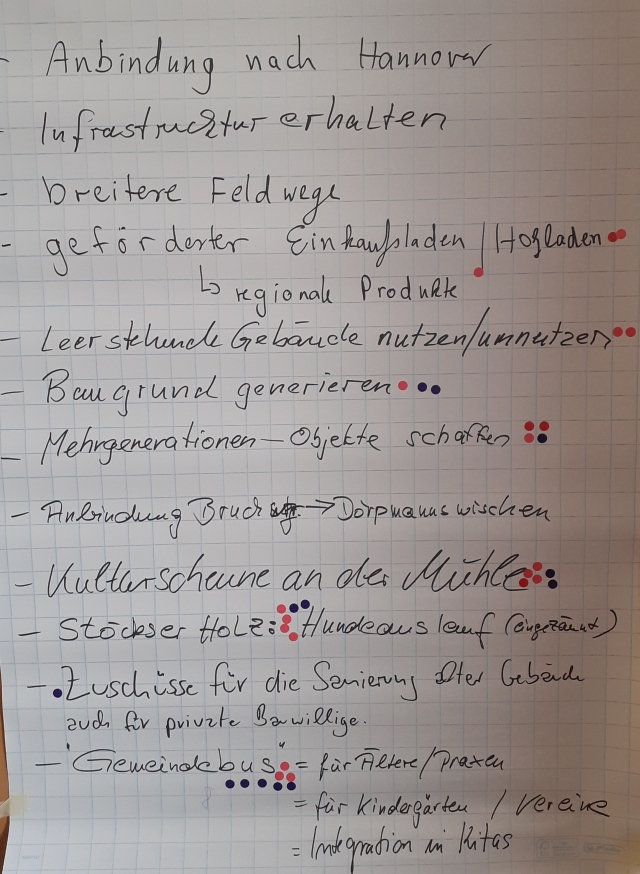 - Anbindung nach Hannover
- Infrastrucktur erhalten
- breitere Feldwege
- geförderter Einkaufsladen / Hofladen
↳ regionale Produkte
- Leerstehende Gebäude nutzen/umnutzen
- Baugrund generieren
- Mehrgenerationen-Objekte schaffen
- Anbindung Bruch → Dörpmannswischen
- Kulturscheune an der Mühle
- Stöckser Holz: Hundeauslauf (eingezäunt)
- Zuschüsse für die Sanierung alter Gebäude
auch für private Bauwillige.
- "Gemeindebus" = für Ältere/Praxen
= für Kindergärten / Vereine
= Integration in Kitas